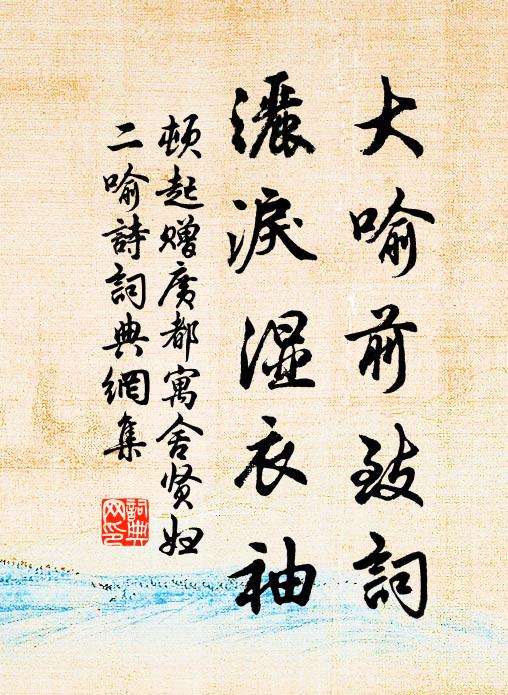 大喻前致詞
灑淚濕衣袖
頓起贈廣都寓舍贤妞
二喻詩詞典網集
詞典
网印